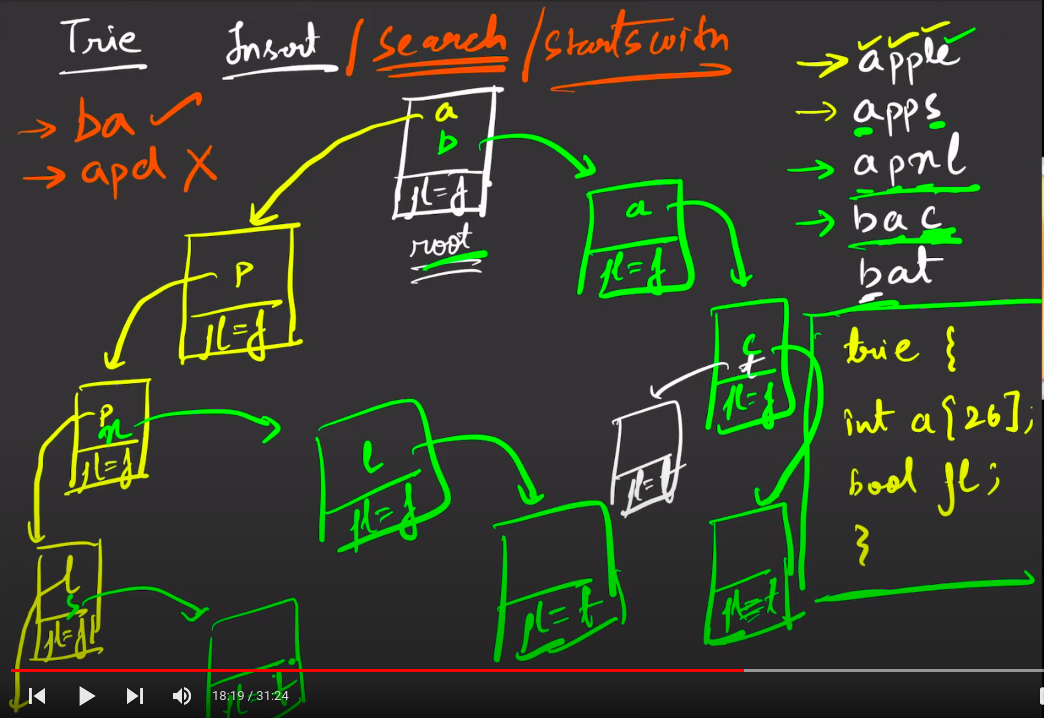 Trie Insert / Search / Startswith
→ ba ✓
→ apd X
→ apple
→ apps
→ apxl
→ bac
bat
a
b
fl=f
root
a
fl=f
p
fl=f
c
t
fl=f
p
x
fl=f
l
fl=f
fl=t
l
s
fl=f
fl=t
fl=t
trie {
int a[26];
bool fl;
}
18:19 / 31:24